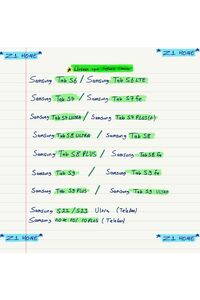 Z1 HOME Z1 HOME
Samsung Tab S6 / Samsung Tab S6 LTE
Samsung Tab S7 / Samsung Tab S7 fe
Samsung Tab S7 ULTRA / Samsung Tab S7 PLUS
Samsung Tab S8 ULTRA / Samsung Tab S8
Samsung Tab S8 PLUS / Samsung Tab S8 fe
Samsung Tab S9 / Samsung Tab S9 fe
Samsung Tab S9 PLUS / Samsung Tab S9 ULTRA
Samsung S22 / S23 Ultra (Telefon)
Samsung note 10 / 10 PLUS (Telefon)
Z1 HOME Z1 HOME